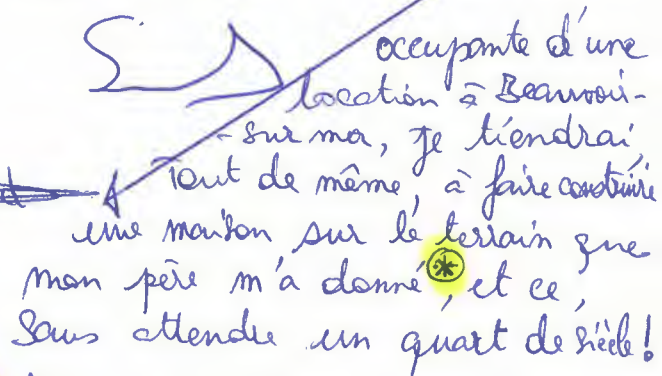 occupante d'une
location à Beauvoir-
-sur mer, je tiendrai,
Tout de même, à faire construire
une maison sur le terrain que
mon père m'a donné *, et ce,
Sans attendre un quart de siècle !